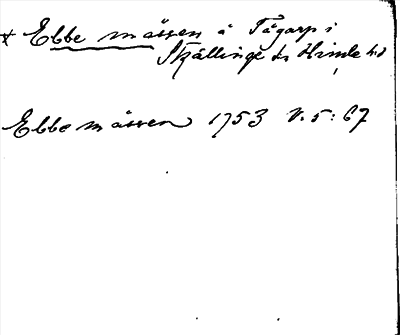 * Ebbe måssen å Tågarp i
Skällinge sn Himle hd
Ebbe måssen 1753 V. 5: 67